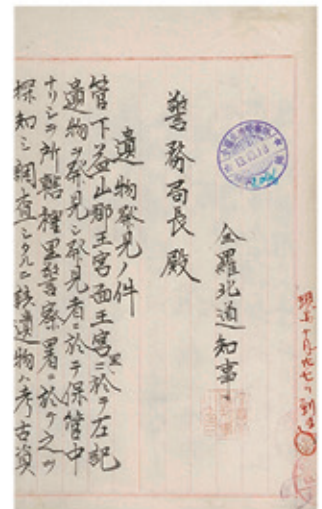 全羅北道知事
警務局長殿
遺物発見ノ件
管下益山郡王宮面王宮里ニ於テ左記
遺物ヲ発見シ発見者ニ於テ保管中
ナリシヲ所轄裡里警察署ニ於テ之ヲ
探知シ調査シタルニ該遺物ハ考古資